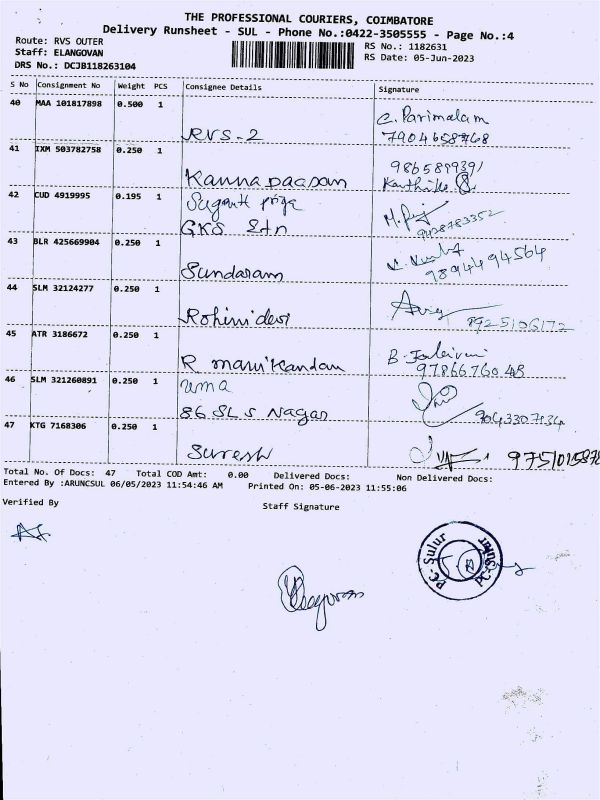 THE PROFESSIONAL COURIERS, COIMBATORE
Delivery Runsheet - SUL - Phone No.:0422-3505555 - Page No.:4
Route: RVS OUTER
RS No.: 1182631
Staff: ELANGOVAN
RS Date: 05-Jun-2023
DRS No.: DCJB118263104
S No Consignment No Weight PCS Consignee Details Signature
40 MAA 101817898 0.500 1
C. Parimalam
RVS-2
7904658768
41 IXM 503782758 0.250 1
Kannadaasan
Karthika
42 CUD 4919995 0.195 1
Suganth priya
GKS Stn
9428783352
43 BLR 425669904 0.250 1
Sundaram
9894494564
44 SLM 32124277 0.250 1
Rohini devi
8925106172
45 ATR 3186672 0.250 1
R manikandan
9786676048
46 SLM 321260891 0.250 1
uma
86 SLS Nagar
9043307134
47 KTG 7168306 0.250 1
Suresh
Total No. Of Docs: 47 Total COD Amt: 0.00 Delivered Docs: Non Delivered Docs:
Entered By :ARUNCSUL 06/05/2023 11:54:46 AM Printed On: 05-06-2023 11:55:06
Verified By
Staff Signature
PC-Sulur
PC-Sulur